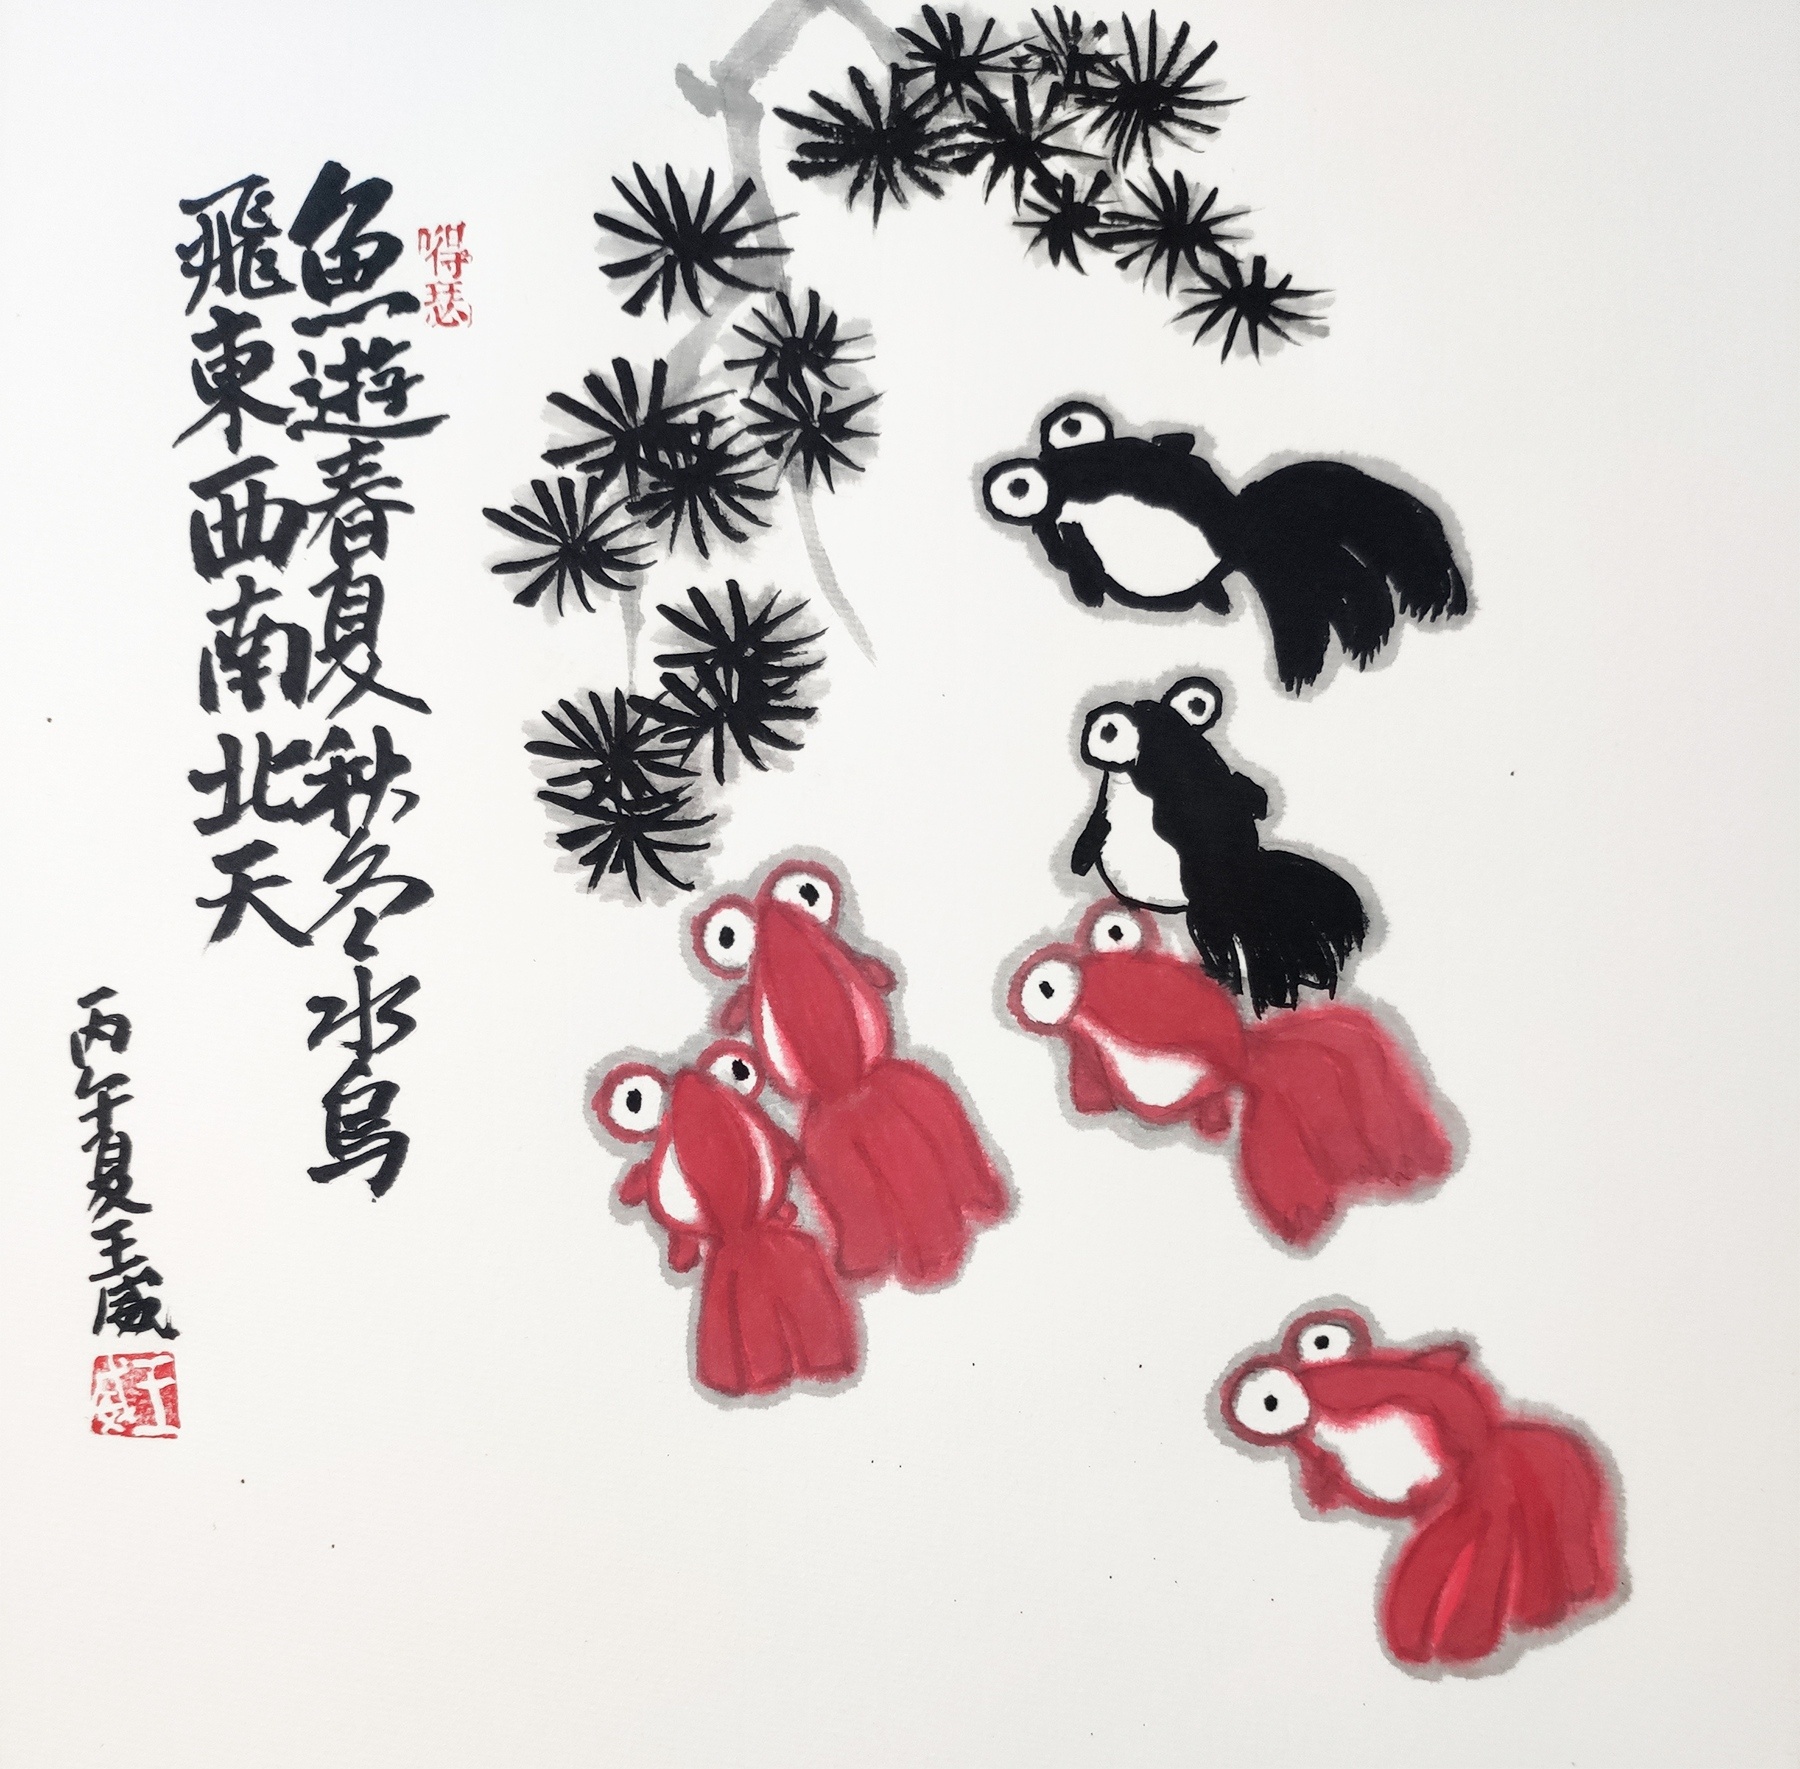 嘚瑟
魚遊春夏秋冬水鳥
飛東西南北天
丙午夏王威
王威